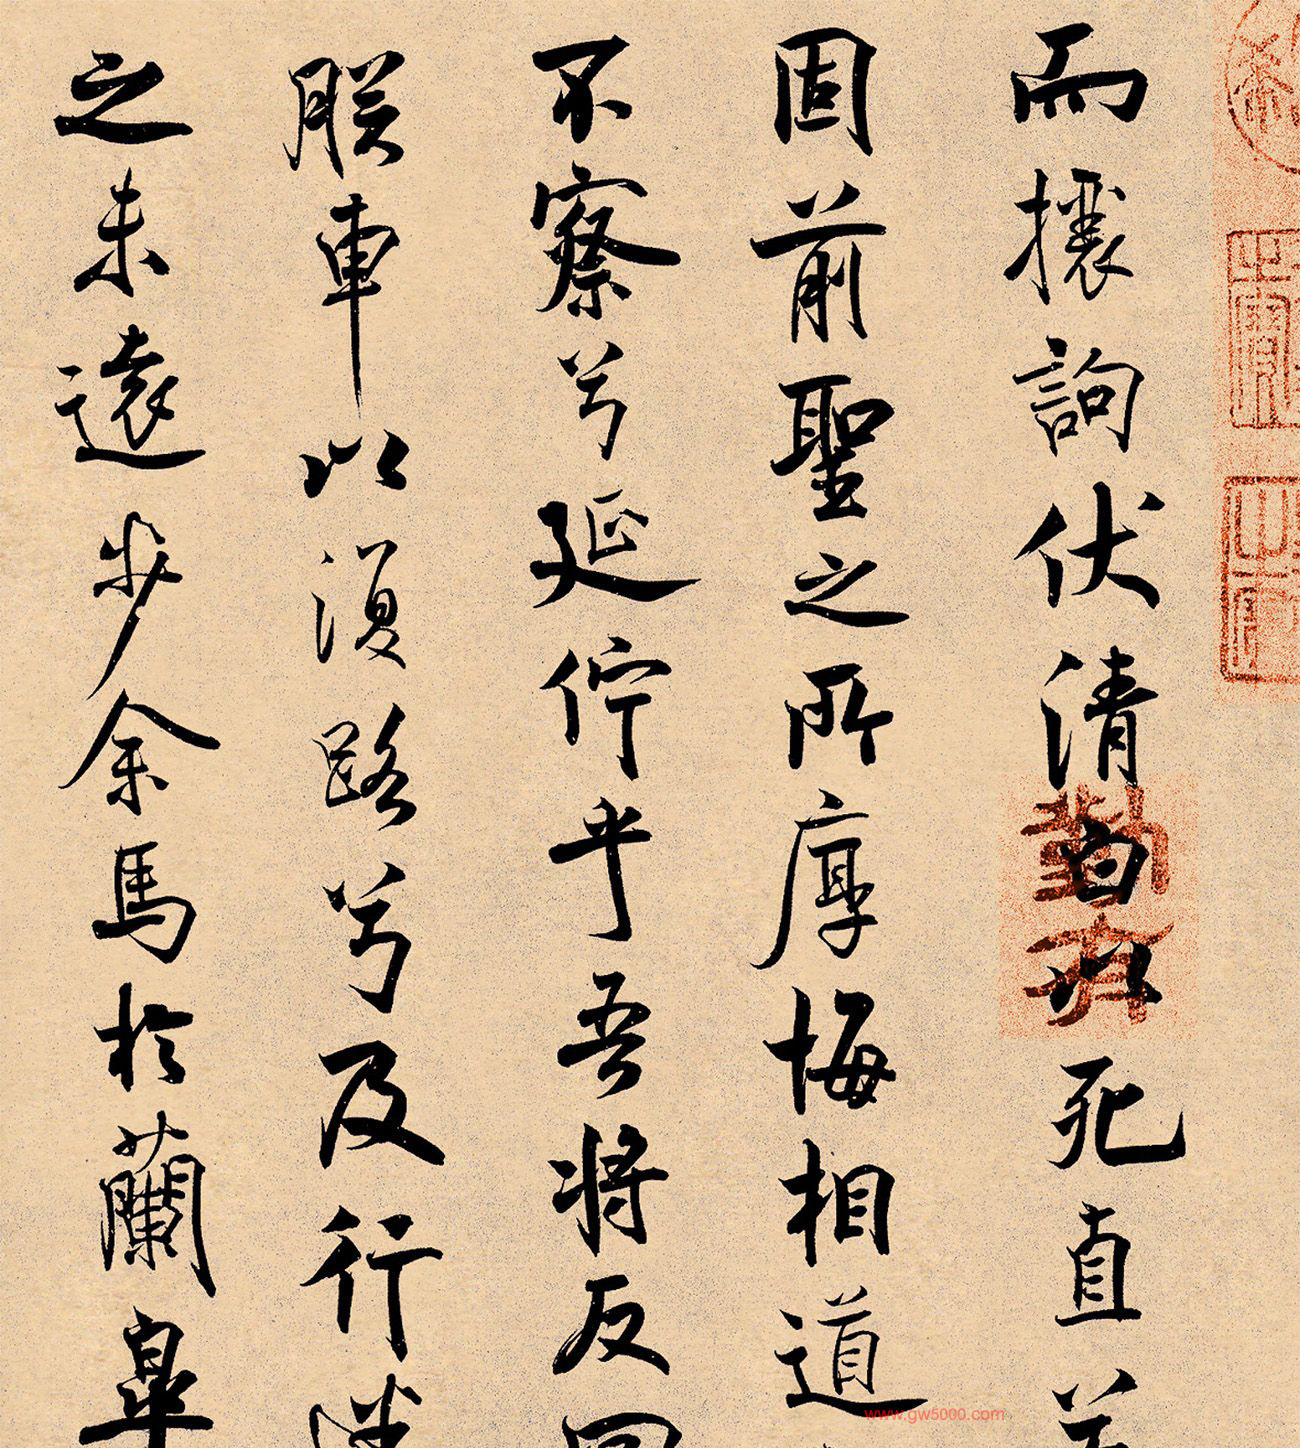 而攘詢伏清白以死直兮
固前聖之所厚悔相道
不察兮延佇乎吾將反回
朕車以復路兮及行迷
之未遠步余馬於蘭皋
www.gw5000.com